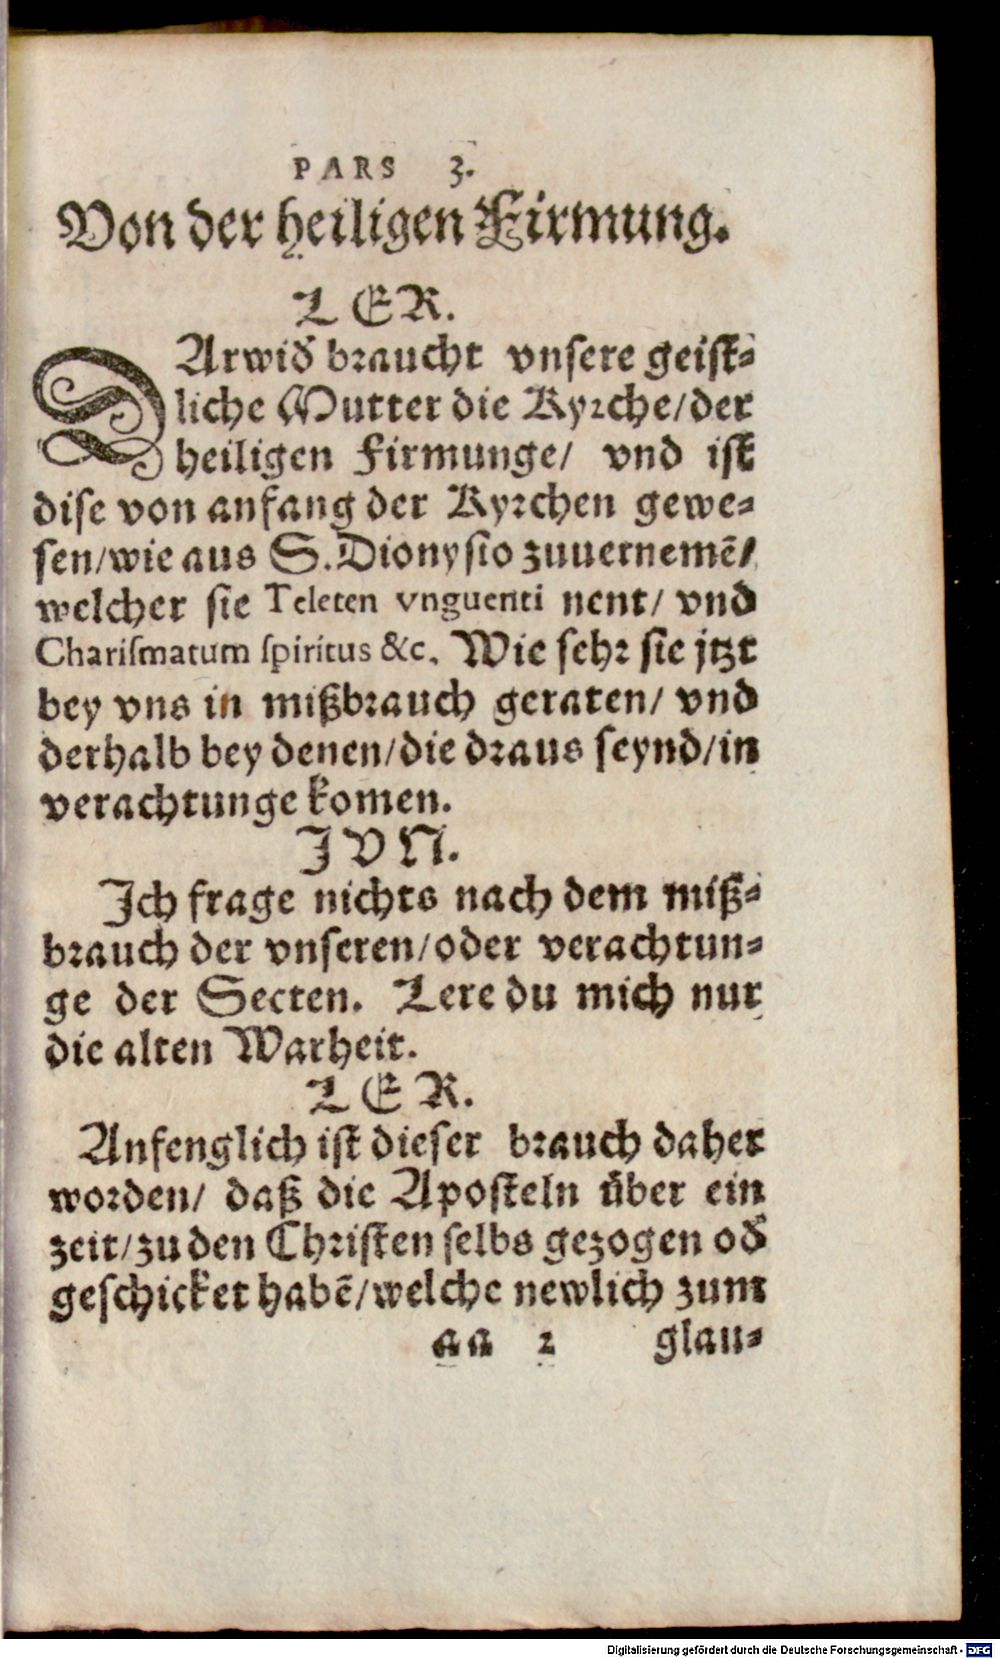 PARS 3.
Von der heiligen Firmung.
LER.
DArwid̄ braucht vnsere geist-
liche Mutter die Kyrche/der
heiligen Firmunge/ vnd ist
dise von anfang der Kyrchen gewe-
sen/wie aus S. Dionysio zuuernemē/
welcher sie Teleten vnguenti nent/ vnd
Charismatum spiritus &c. Wie sehr sie jtzt
bey vns in mißbrauch geraten/ vnd
derhalb bey denen/die draus seynd/in
verachtunge komen.
JVN.
Ich frage nichts nach dem miß-
brauch der vnseren/oder verachtun-
ge der Secten. Lere du mich nur
die alten Warheit.
LER.
Anfenglich ist dieser brauch daher
worden/ daß die Aposteln über ein
zeit/zu den Christen selbs gezogen od̄
geschicket habē/welche newlich zum
aa 2 glau-
Digitalisierung gefördert durch die Deutsche Forschungsgemeinschaft - DFG